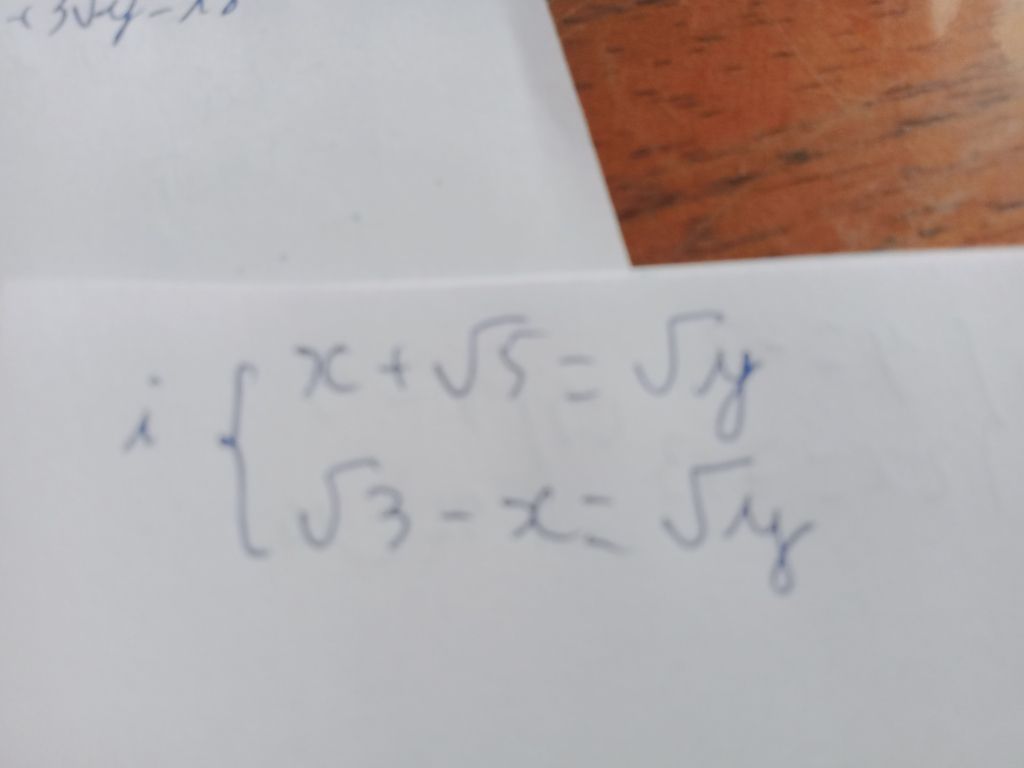 i { x + √5 = √y
√3 - x = √y